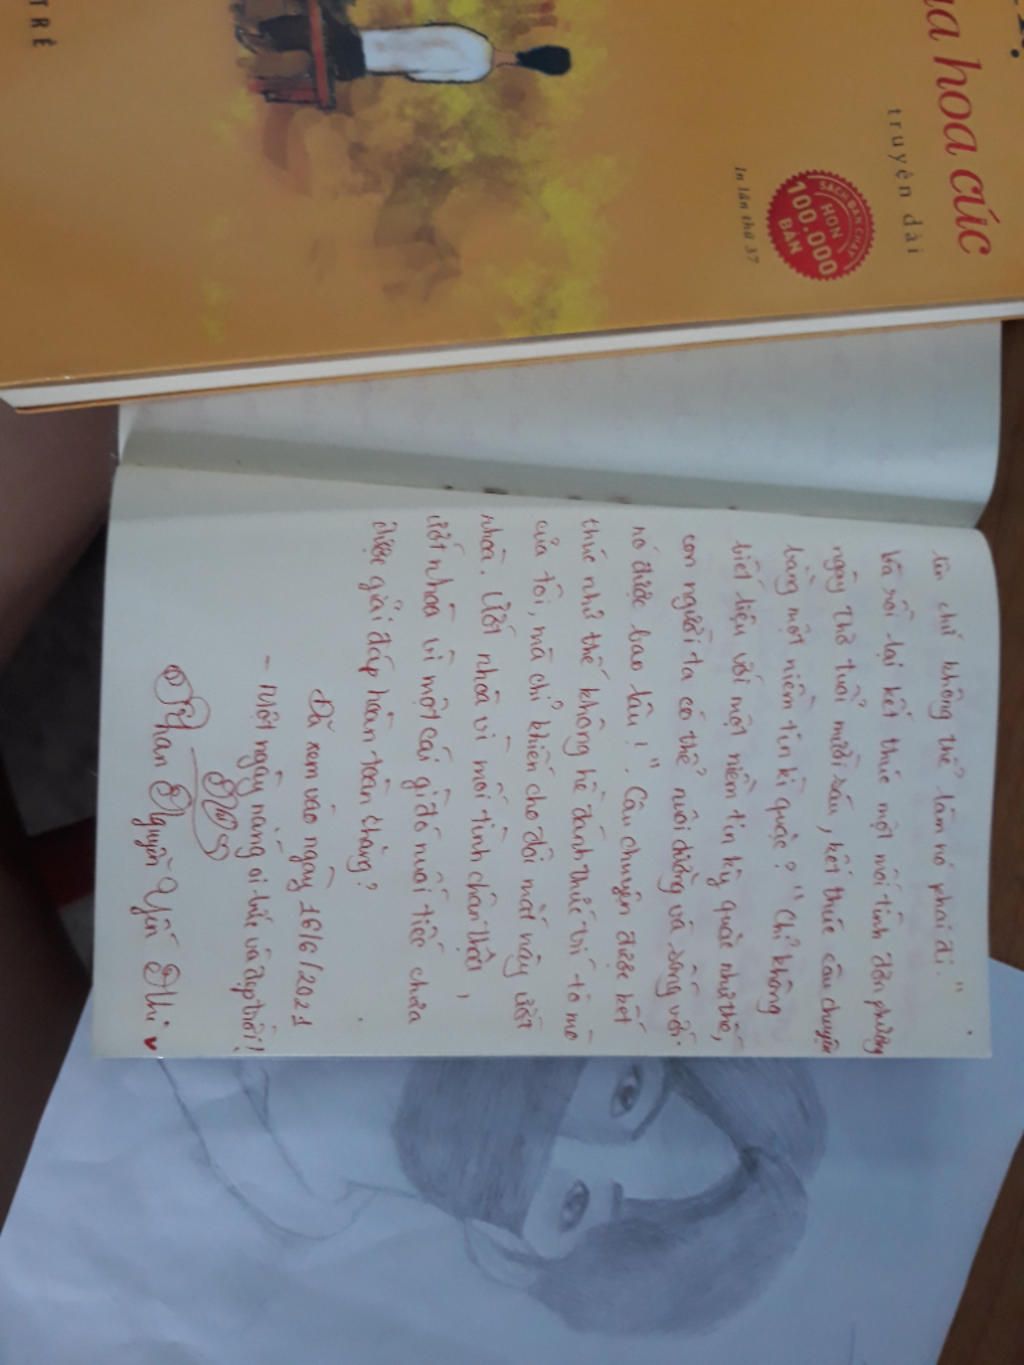 TRẺ
ua hoa cúc
truyện dài
SÁCH BÁN CHẠY
HƠN
100.000
BẢN
In lần thứ 37
lên chứ không thể làm nó phai đi."
Và rồi lại kết thúc một mối tình đơn phương
ngây thơ tuổi mười sáu, kết thúc câu chuyện
bằng một niềm tin kì quặc? "Chỉ không
biết liệu với một niềm tin kỳ quặc như thế,
con người ta có thể nuôi dưỡng và sống với
nó được bao lâu!". Câu chuyện được kết
thúc như thế không hề đánh thức trí tò mò
của tôi, mà chỉ khiến cho đôi mắt này ướt
nhòa. Ướt nhòa vì mối tình chân thật,
ướt nhòa vì một cái gì đó nuối tiếc chưa
được giải đáp hoàn toàn chăng?
Đã xem vào ngày 16/6/2021
- Một ngày nắng oi bức và đẹp trời!
Nhi
Phan Nguyễn Yến Nhi